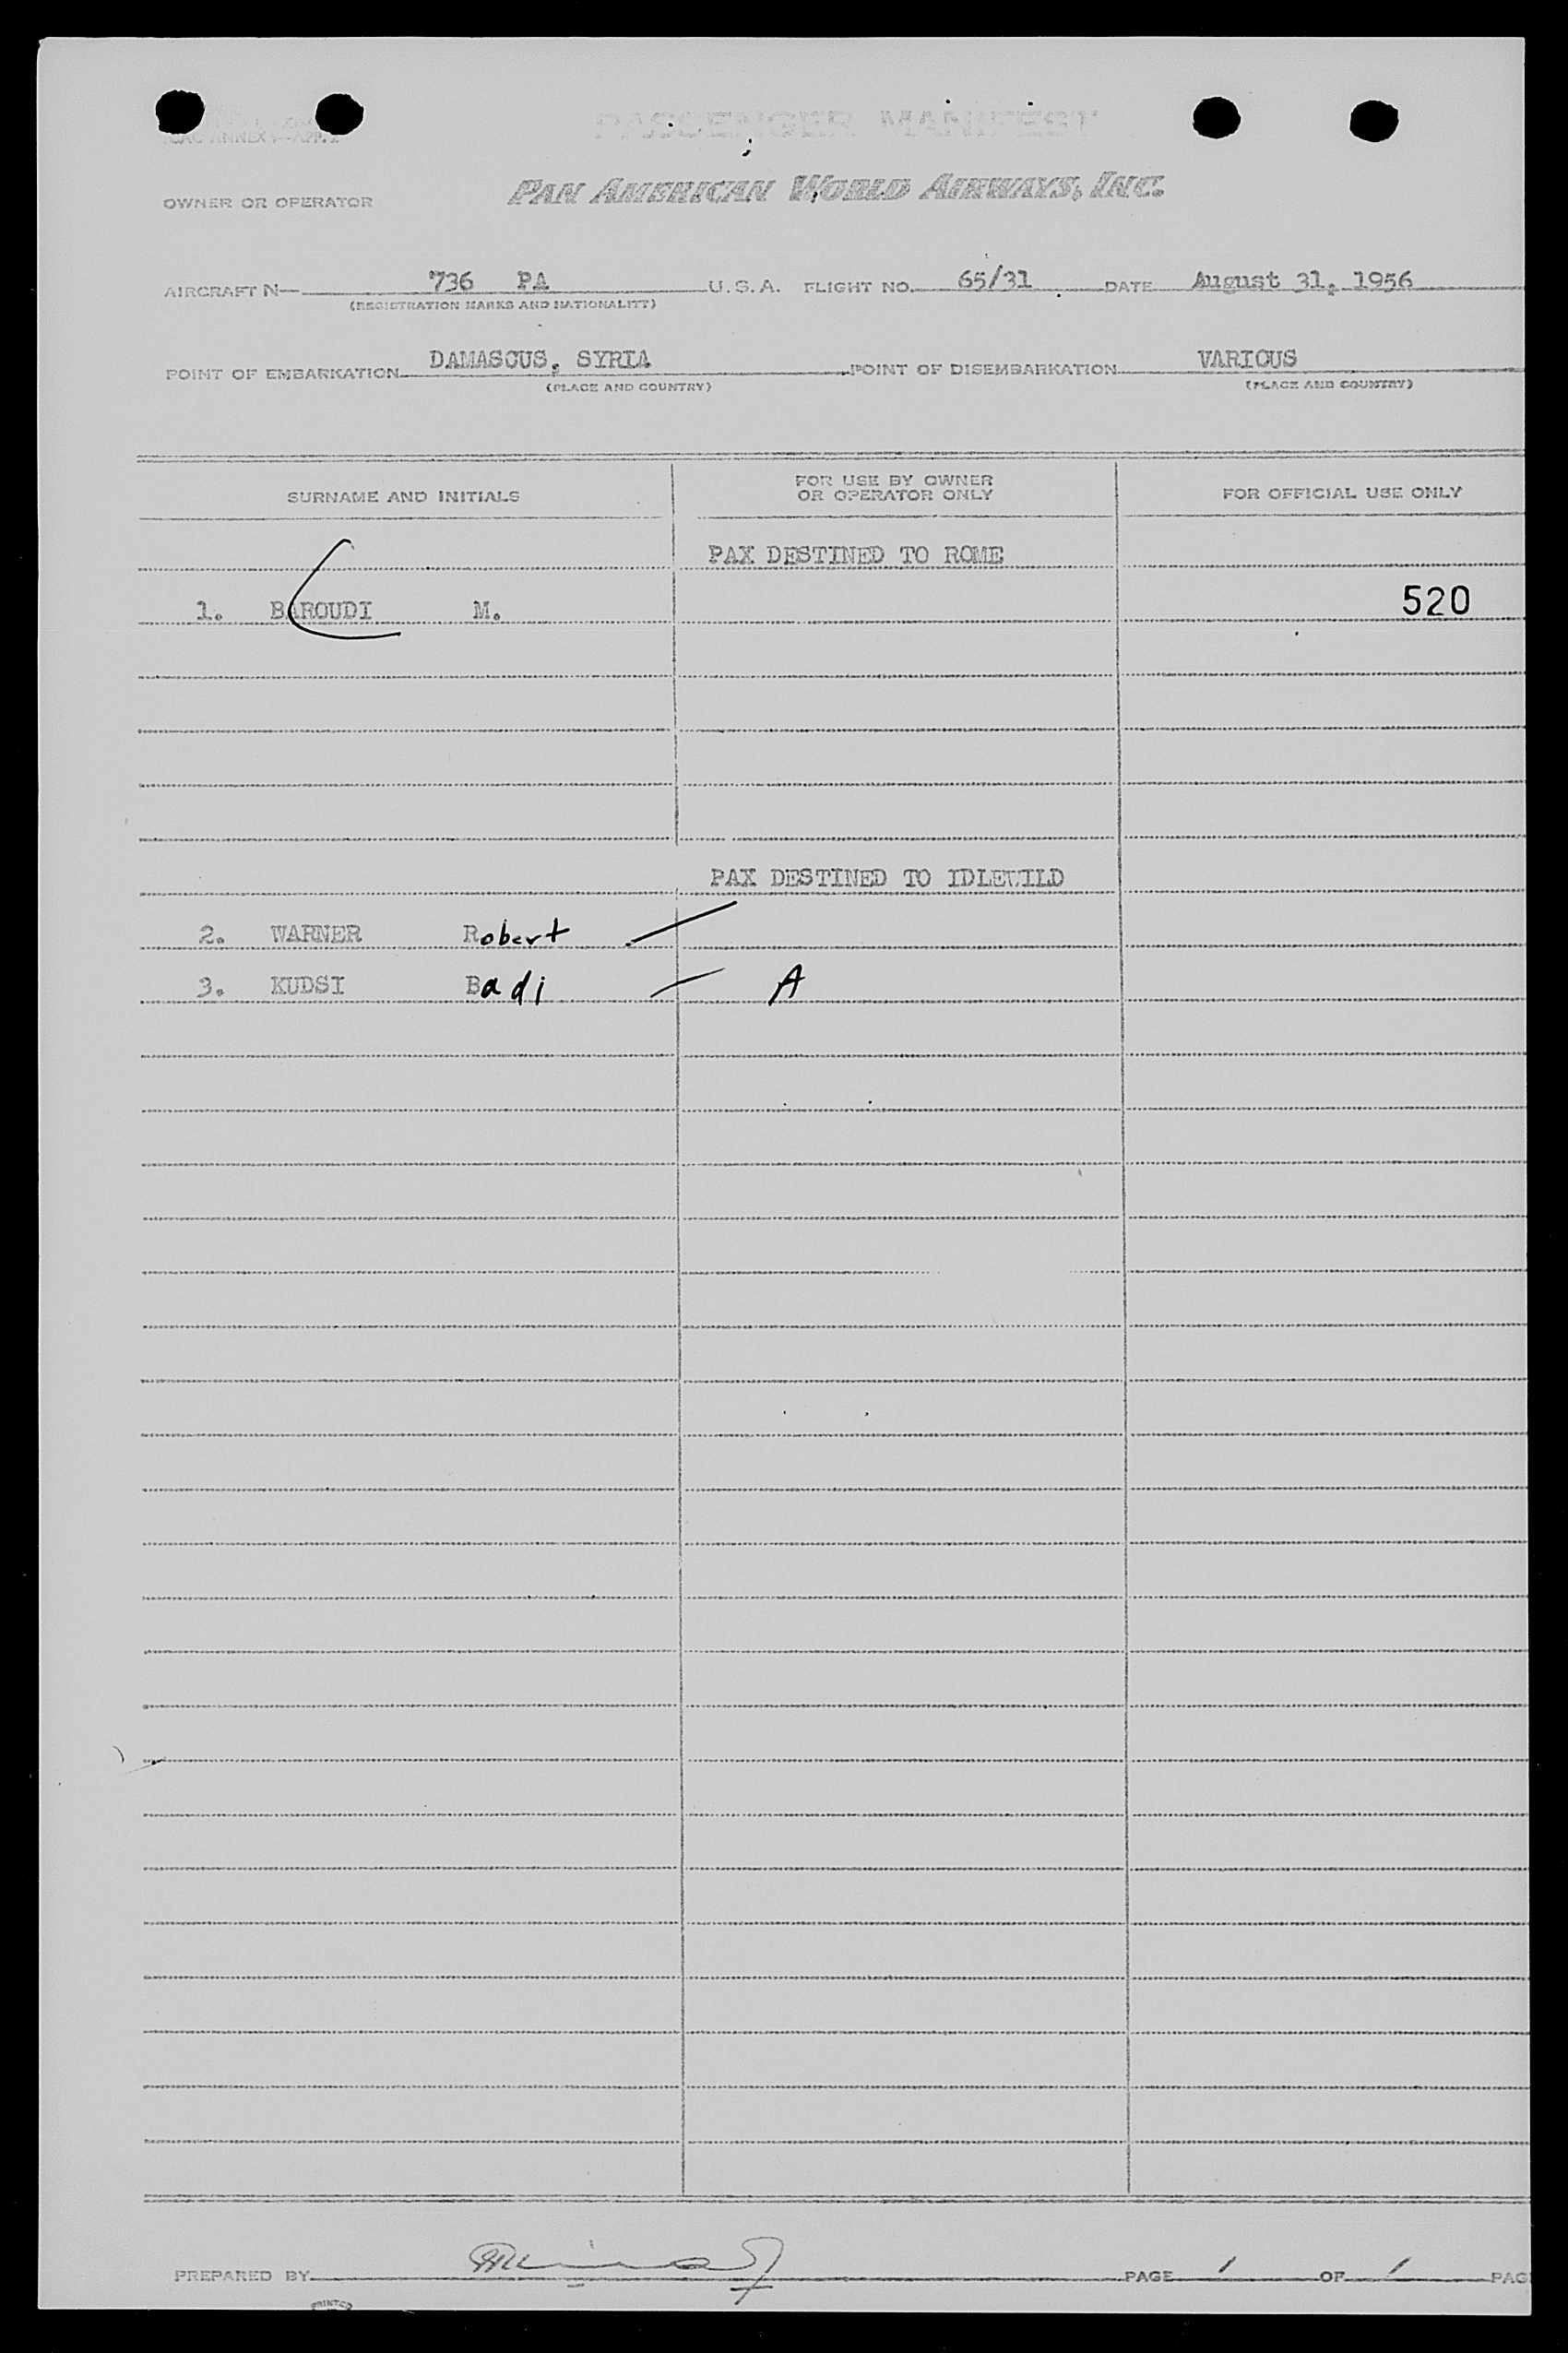 PASSENGER MANIFEST
OWNER OR OPERATOR PAN AMERICAN WORLD AIRWAYS, INC.
AIRCRAFT N— 736 PA U.S.A. FLIGHT NO. 65/31 DATE August 31, 1956
(REGISTRATION MARKS AND NATIONALITY)
POINT OF EMBARKATION DAMASCUS, SYRIA POINT OF DISEMBARKATION VARIOUS
(PLACE AND COUNTRY) (PLACE AND COUNTRY)
SURNAME AND INITIALS FOR USE BY OWNER OR OPERATOR ONLY FOR OFFICIAL USE ONLY
PAX DESTINED TO ROME
1. BAROUDI M. 520
PAX DESTINED TO IDLEWILD
2. WARNER Robert
3. KUDSI Badi A
PREPARED BY PAGE 1 OF 1 PAG